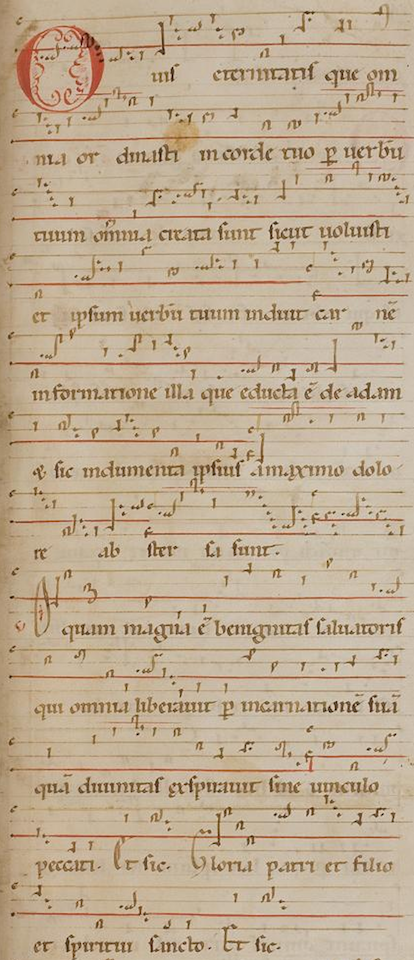 O uis eternitatis que om
nia or dinasti in corde tuo p̱ uerbū
tuum om̄ia creata sunt sicut uoluisti
et ipsum uerbū tuum induit car nē
in formatione illa que educta ē de adam
& sic indumenta ipsius a maximo dolo
re ab ster sa sunt.
O quam magna ē benignitas saluatoris
qui omnia liberauit p̱ incarnationē suā
quā diuinitas exspirauit sine uinculo
peccati. Et sic. Gloria patri et filio
et spiritui sancto. Et sic.